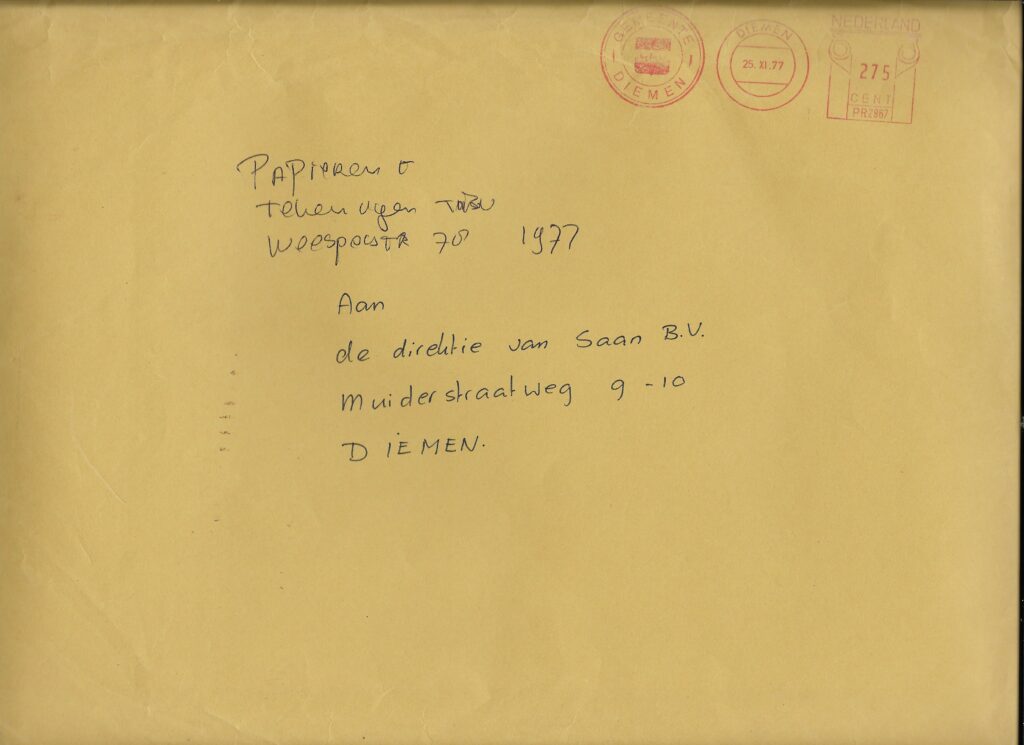 GEMEENTE DIEMEN
DIEMEN
25. XI. 77
NEDERLAND
275
CENT
PR2967
PAPIEREN
Weesperstr 70 1977
Aan
de direktie van Saan B.V.
Muiderstraatweg 9 - 10
DIEMEN.